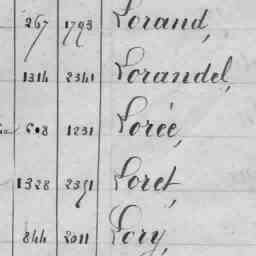 267 1793 Lorand,
1314 2341 Lorandel,
608 1231 Lorée,
1328 2351 Loret,
844 2011 Lory,